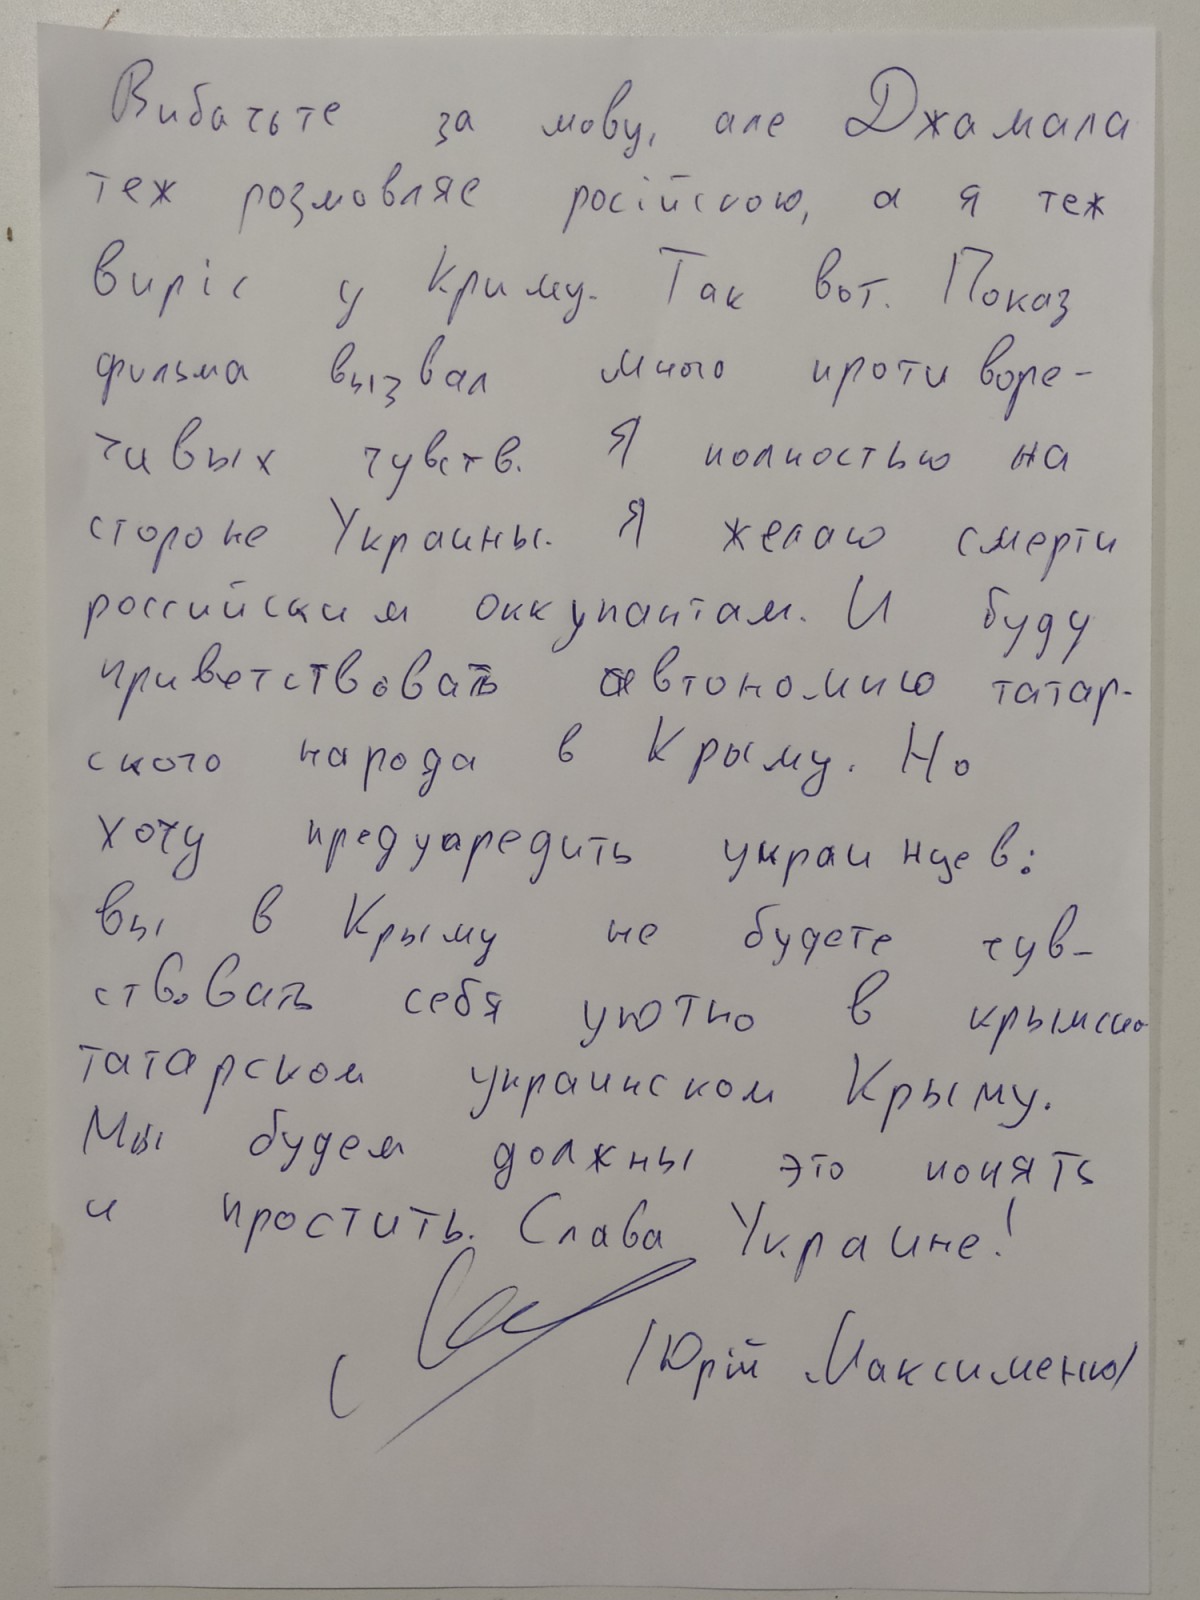 Вибачьте за мову, але Джамала
теж розмовляє російскою, а я теж
виріс у Криму. Так вот. Показ
фильма вызвал много противоре-
чивых чувств. Я полностью на
стороне Украины. Я желаю смерти
российским оккупантам. И буду
приветствовать автономию татар-
ского народа в Крыму. Но
хочу предупредить украинцев:
вы в Крыму не будете чув-
ствовать себя уютно в крымско
татарском украинском Крыму.
Мы будем должны это понять
и простить. Слава Украине!
/Юрій Максименко/